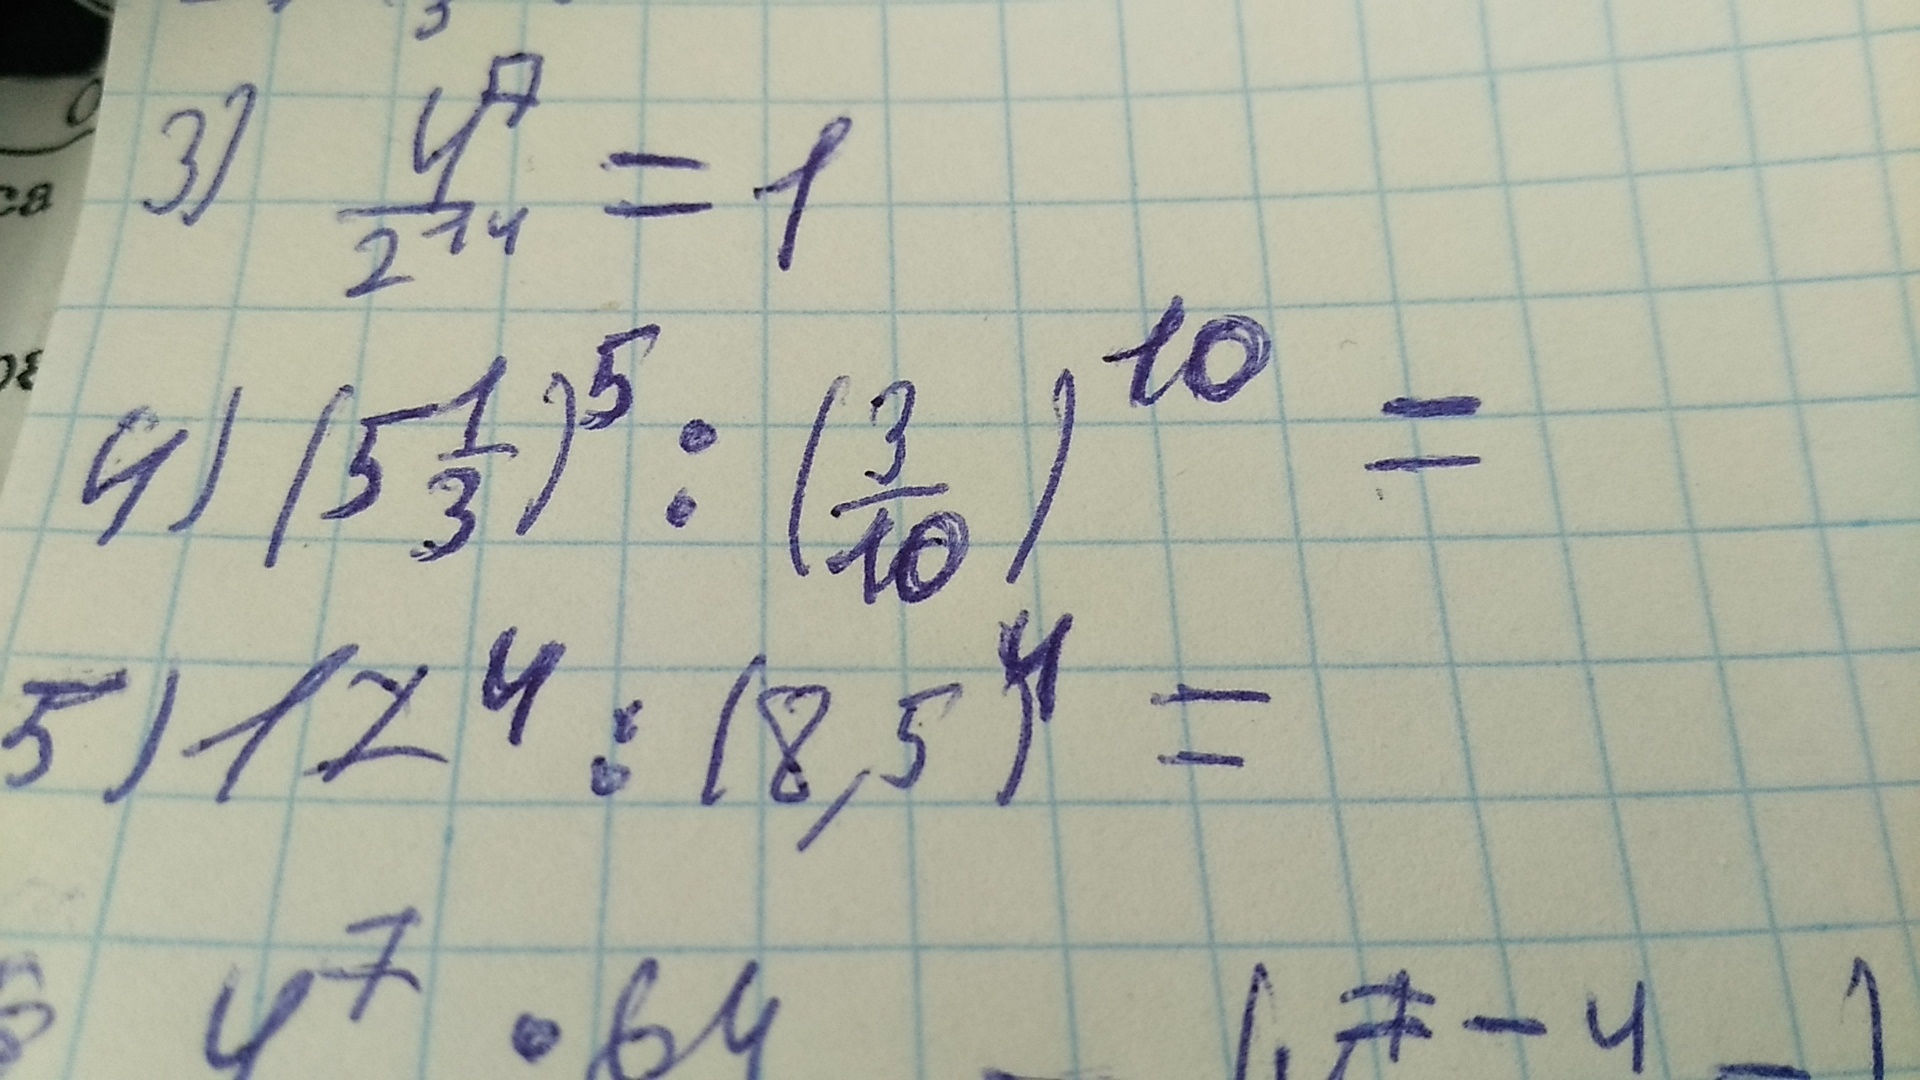 3) 4^7/2^14 = 1
4) (5 1/3)^5 : (3/10)^10 =
5) 17^4 : (8,5)^4 =
4^7 · 64
7 - 4